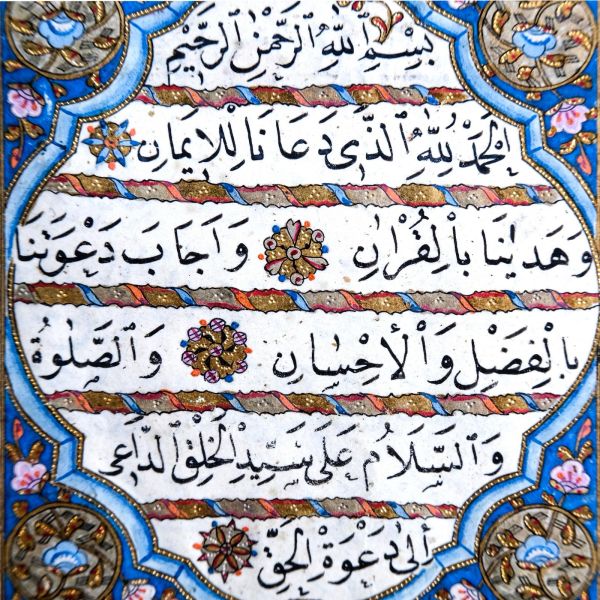 بِسْمِ اللّٰهِ الرَّحْمٰنِ الرَّحِيْمِ
اَلْحَمْدُ لِلّٰهِ الَّذٰى دَعَانَا لِلْاِيمَانِ
وَهَدٰينَا بِالْقُرْاٰنِ وَاَجَابَ دَعْوَتَنَا
بِالْفَضْلِ وَالْاِحْسَانِ وَالصَّلٰوةُ
وَالسَّلَامُ عَلٰى سَيِّدِ الْخَلْقِ الدَّاعٰى
اِلٰى دَعْوَةِ الْحَقِّ